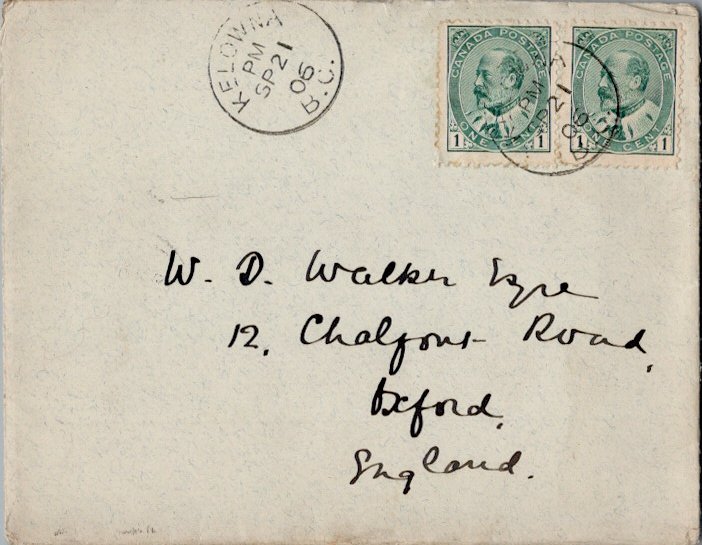 KELOWNA
PM
SP 21
06
B.C.
CANADA POSTAGE
1 ONE 1
CANADA POSTAGE
1 CENT 1
PM
SP 21
06
W. D. Walker Esqre
12, Chalfont Road,
Oxford,
England.